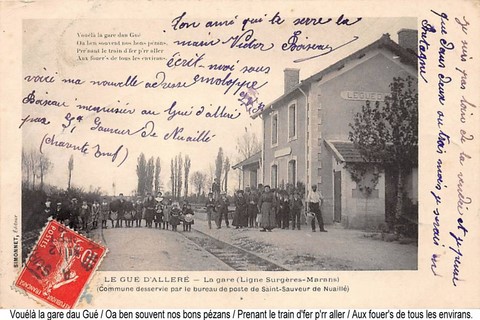 Vouélà la gare dau Gué
Oa ben souvent nos bons pézans,
Prenant le train d'fer p'r aller
Aux fouer's de tous les environs.
ton ami qui te serre la
main Victor
écrit-moi sous
envoloppe
voici ma nouvelle adresse
menuisier au Gué d'alleré
par St Sauveur de Nuaillé
(charente Inf)
je suis pas loin de la vendée et je peux
que dans deux ou trois mois je serais en
Bretagne
LE GUÉ
SIMONNET, Éditeur
LE GUÉ D'ALLERÉ — La gare (Ligne Surgères-Marans)
(Commune desservie par le bureau de poste de Saint-Sauveur de Nuaillé)
10
Vouélà la gare dau Gué / Oa ben souvent nos bons pézans / Prenant le train d'fer p'r aller / Aux fouer's de tous les environs.